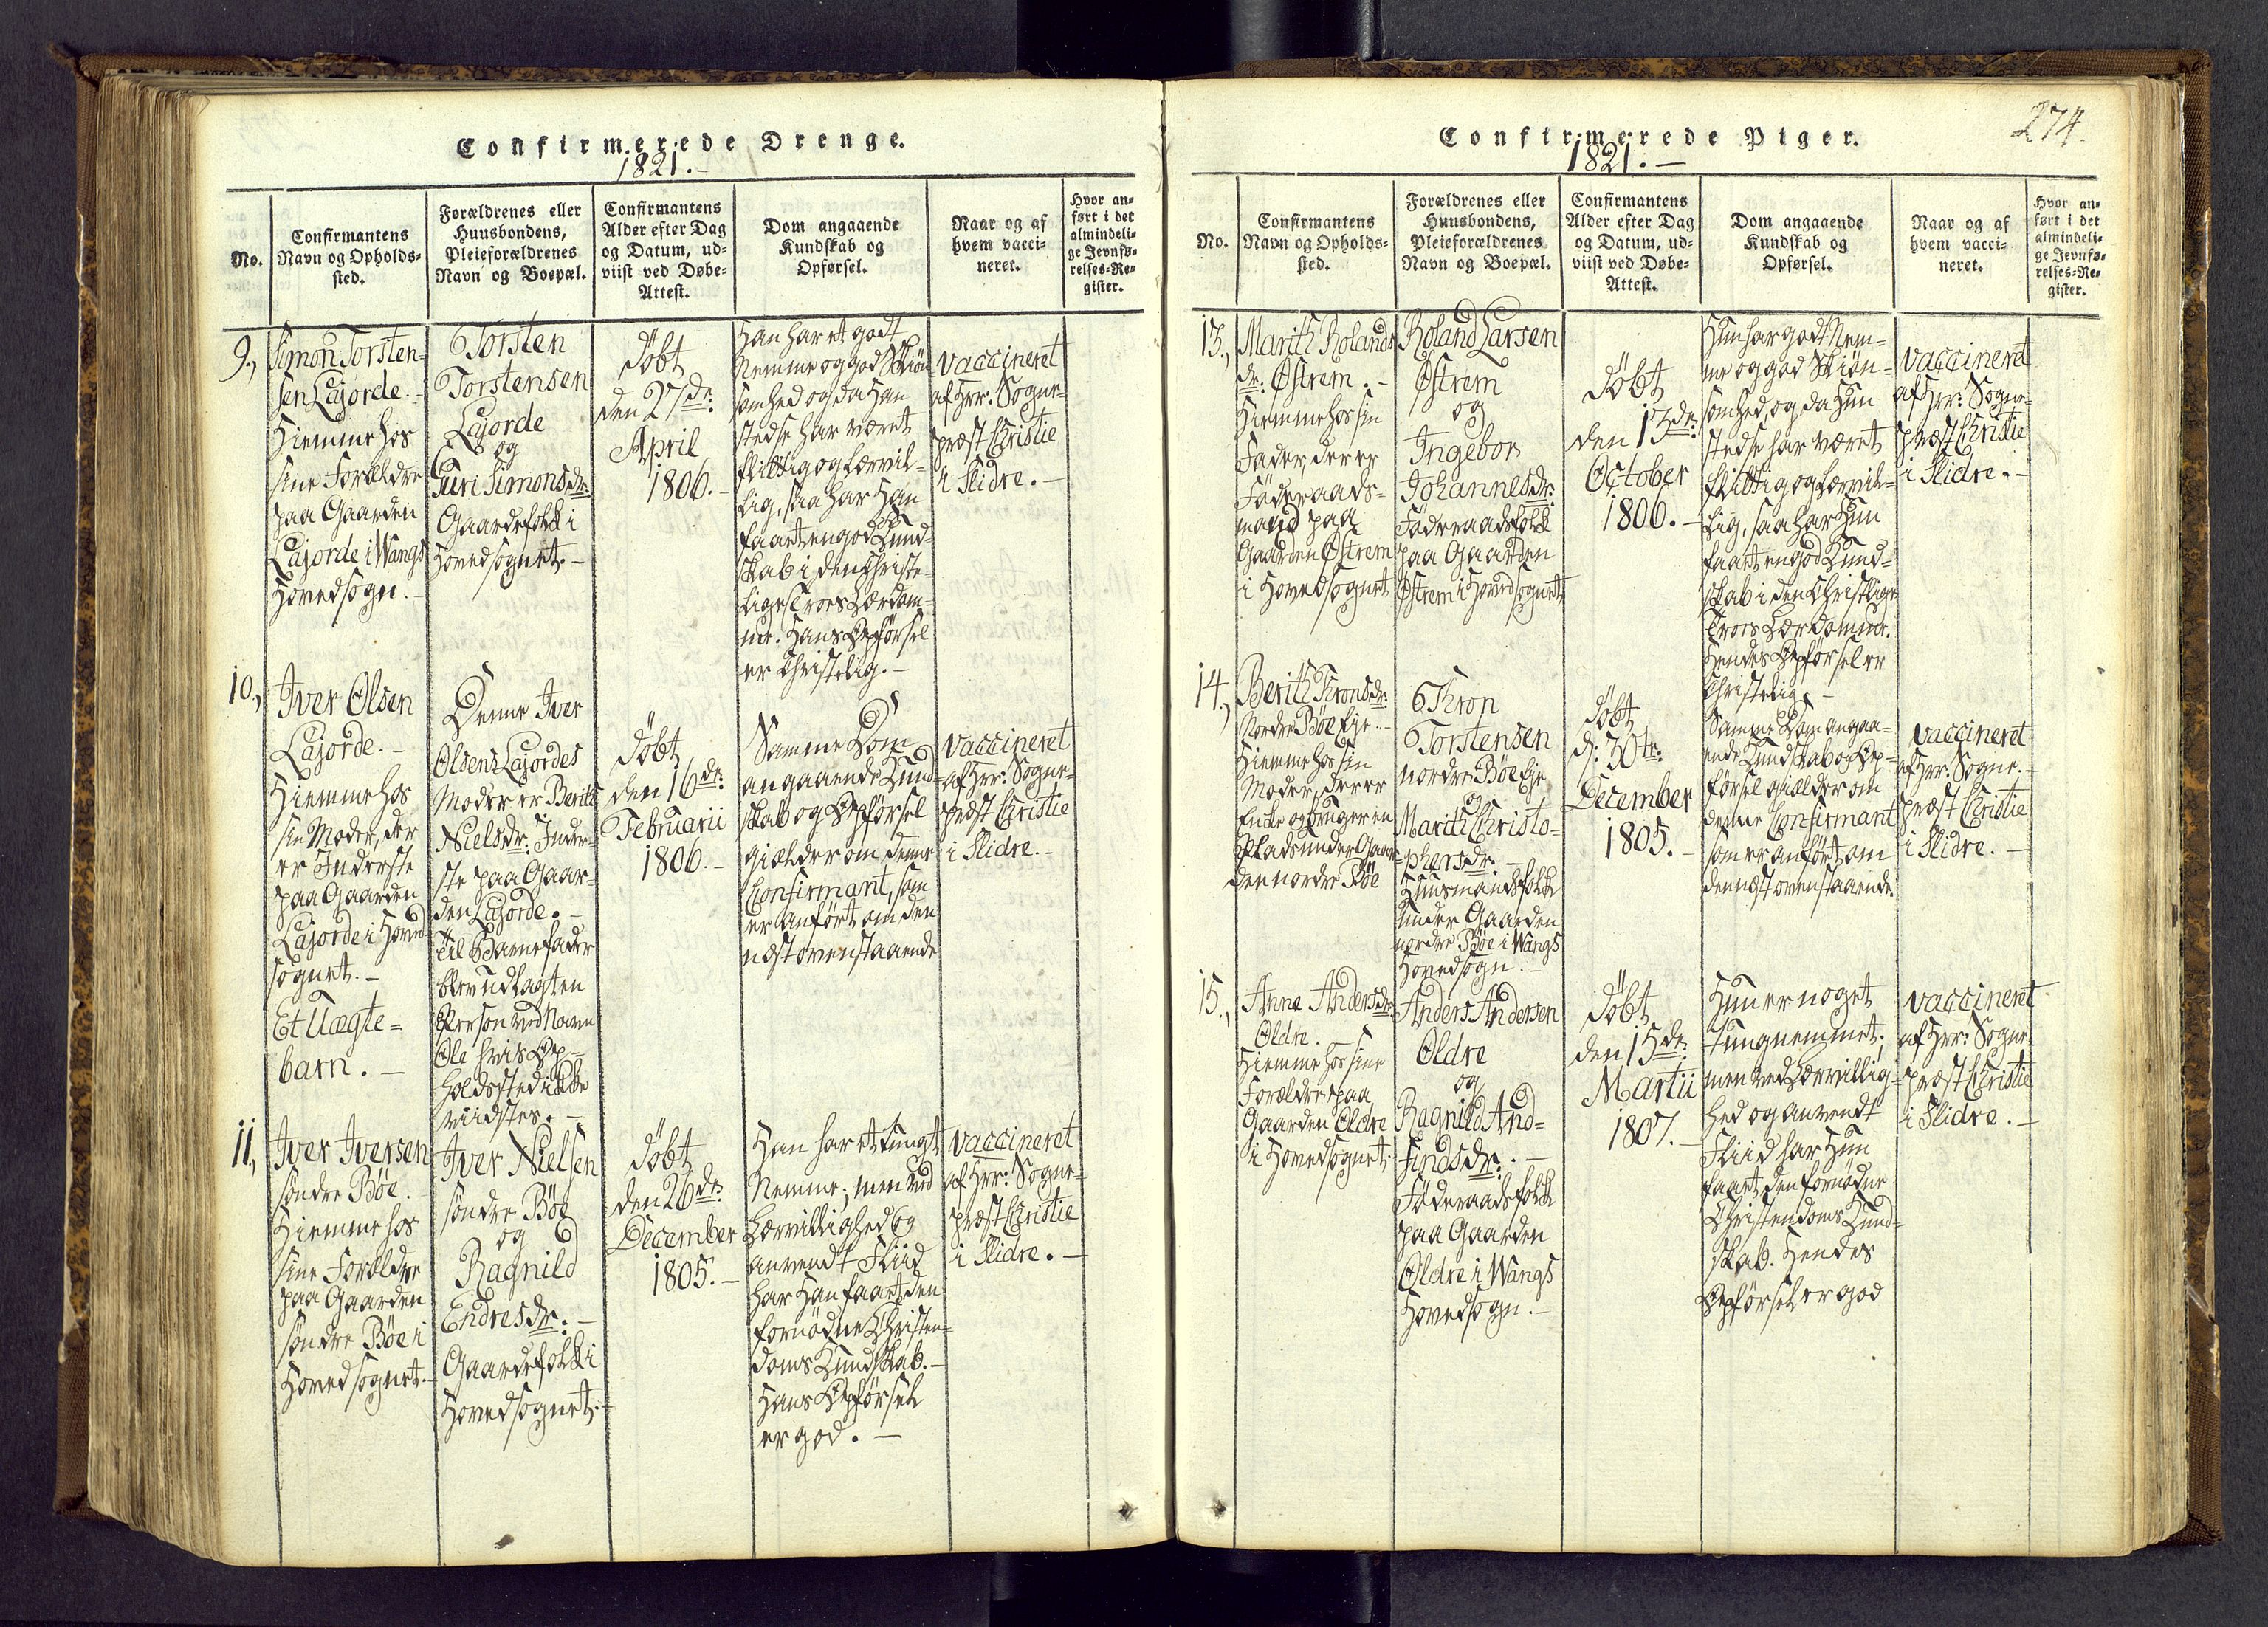 Confirmerede Drenge.
1821.-
No.
Confirmantens
Navn og Opholds-
sted.
Forældrenes eller
Huusbondens,
Pleieforældrenes
Navn og Boepæl.
Confirmantens
Alder efter Dag
og Datum, ud-
viist ved Døbe-
Attest.
Dom angaaende
Kundskab og
Opførsel.
Naar og af
hvem vacci-
neret.
Hvor an-
ført i det
almindeli-
ge Jevnfø-
relses-Re-
gister.
9.,
Simon Torsten-
sen Lajorde.-
Hiemme hos
sine Forældre
paa Gaarden
Lajorde i Wangs
Hovedsogn.-
Torsten
Torstensen
Lajorde
og
Guri Simonsdr:
Gaardefolk i
Hovedsognet.-
döbt
den 27de:
April
1806.-
Han har et godt
Nemme og god Skiön-
somhed og da Han
stedse har været
flittig og lærvil-
lig, saa har Han
faaet en god Kund-
skab i den Christe-
lige Troes Lærdom-
me. Hans Opförsel
er Christelig.-
vaccineret
af Hrr: Sogne-
præst Christie
i Slidre.-
10.,
Iver Olsen
Lajorde.-
Hiemme hos
sin Moder, der
er Inderste
paa Gaarden
Lajorde i Hoved-
sognet.-
Et Uægte-
barn.-
Denne Iver
Olsens Lajordes
Moder er Berith
Nielsdr: Inder-
ste paa Gaar-
den Lajorde.-
Til Barnefader
blev udlagt en
Person ved Navn
Ole hvis Op-
holdssted ikke
viidstes.-
döbt
den 16de:
Februarii
1806.-
Samme Dom
angaaende Kund-
skab og Opförsel
gielder om denne
Confirmant, som
er anfört om den
næst ovenstaaende
vaccineret
af Hrr: Sogne-
præst Christie
i Slidre.-
11.,
Iver Iversen
söndre Böe.
Hiemme hos
sine Forældre
paa Gaarden
söndre Böe i
Hovedsognet.-
Iver Nielsen
söndre Böe
og
Ragnild
Endresdr:.-
Gaardefolk i
Hovedsognet.-
döbt
den 26de:
December
1805.-
Han har et tungt
Nemme; men ved
Lærvillighed og
anvendt Fliid
har Han faaet den
fornödne Christen-
doms Kundskab.-
Hans Opförsel
er god.-
vaccineret
af Hrr: Sogne-
præst Christie
i Slidre.-
274.
Confirmerede Piger.
1821.-
No.
Confirmantens
Navn og Opholds-
sted.
Forældrenes eller
Huusbondens,
Pleieforældrenes
Navn og Boepæl.
Confirmantens
Alder efter Dag
og Datum, ud-
viist ved Døbe-
Attest.
Dom angaaende
Kundskab og
Opførsel.
Naar og af
hvem vacci-
neret.
Hvor an-
ført i det
almindeli-
ge Jevnfø-
relses-Re-
gister.
13.,
Marith Rolands
dr: Östrem.-
Hiemme hos sin
Fader, der er
Föderaads-
mand paa
Gaarden Östrem
i Hovedsognet
Roland Larsen
Östrem
og
Ingebor
Johannesdr:
Föderaadsfolk
paa Gaarden
Östrem i Hovedsognet
döbt
den 13de:
October
1806.-
Hun har god Nem-
me og god Skiön-
somhed, og da Hun
stedse har været
flittig og lærvil-
lig, saa har Hun
faaet en god Kund-
skab i den Christlige
Troes Lærdomme.
Hendes Opförsel er
Christelig.-
vaccineret
af Hrr: Sogne-
præst Christie
i Slidre.-
14.,
Berith Thronsdr:
Nordre Böe Eje.-
Hiemme hos sin
Moder, der er
Enke og bruger en
Plads under Gaar-
den nordre Böe
Thron
Torstensen
nordre Böe Eje
og
Marith Christo-
phersdr.-
Huusmandsfolk
under Gaarden
nordre Böe i Wangs
Hovedsogn.-
döbt
d: 30te:
December
1805.-
Samme Dom angaa-
ende Kundskab og Op-
försel gielder om
denne Confirmant
som er anfört om
den næst ovenstaaende.
vaccineret
af Hrr: Sogne-
præst Christie
i Slidre.-
15.,
Anna Andersdr:
Oldre.-
Hiemme hos sine
Forældre paa
Gaarden Oldre
i Hovedsognet.
Anders Andersen
Oldre
og
Ragnild And-
findsdr:.-
Föderaadsfolk
paa Gaarden
Oldre i Wangs
Hovedsogn.-
döbt
den 15de:
Martii
1807.-
Hun er noget
tungnemmet;
men ved Lærvillig-
hed og anvendt
Fliid har Hun
faaet den fornödne
Christendoms Kund-
skab. Hendes
Opförsel er god
vaccineret
af Hrr: Sogne-
præst Christie
i Slidre.-